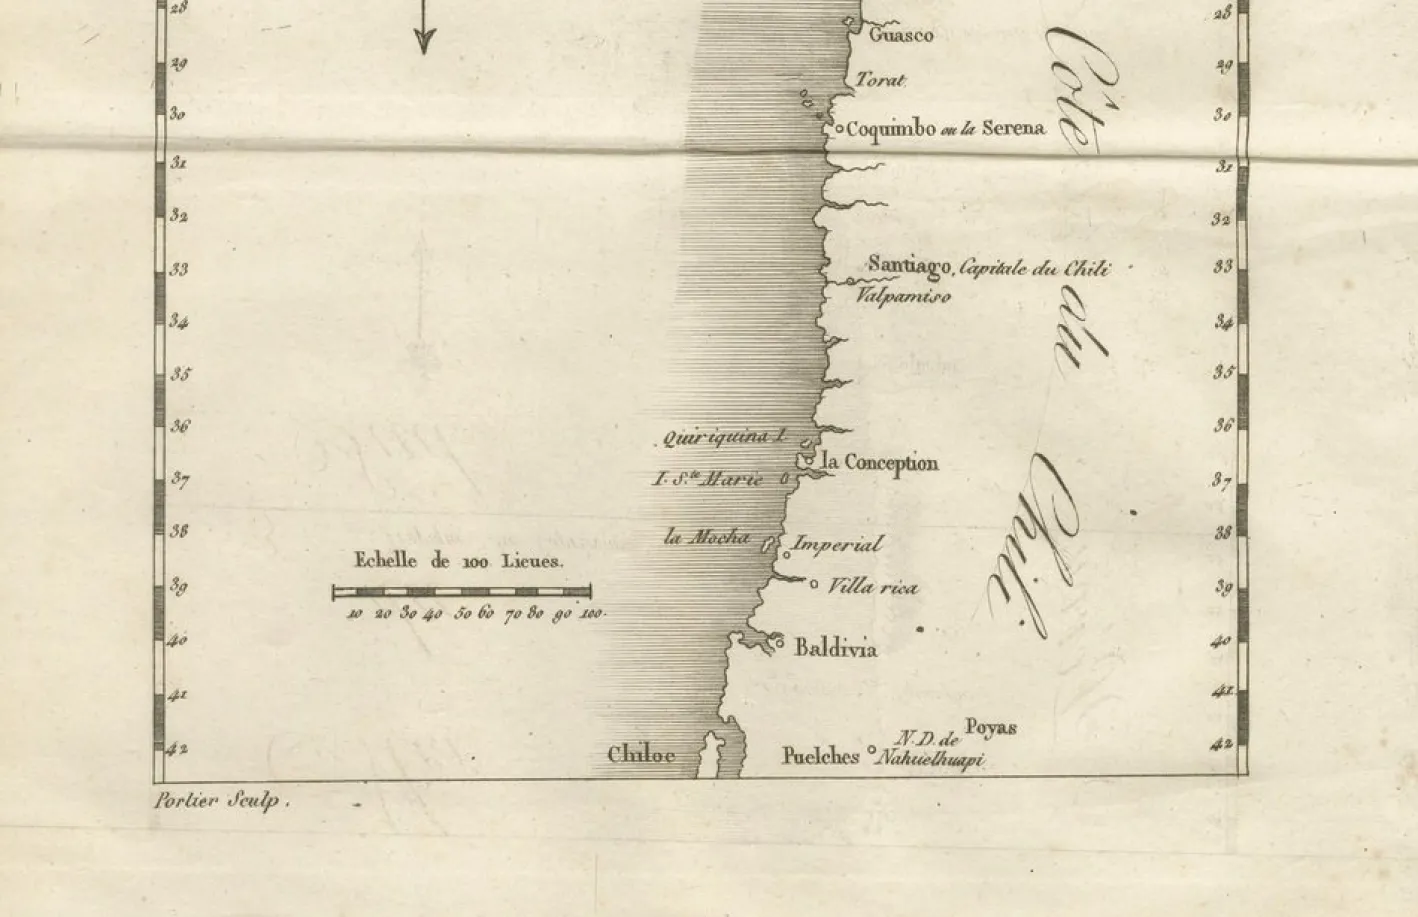 28 28
Guasco
29 29
Torat
30 30
Coquimbo ou la Serena
31 31
32 32
Santiago, Capitale du Chili
33 33
Valpamiso
34 34
35 35
36 36
Quiriquina I.
la Conception
I. S.te Marie
37 37
38 38
la Mocha
Imperial
Echelle de 100 Lieues.
39 39
Villa rica
10 20 30 40 50 60 70 80 90 100.
40 40
Baldivia
41 41
Poyas
N.D. de
42 42
Chiloe
Puelches
Nahuelhuapi
Côte du Chili
Porlier Sculp.